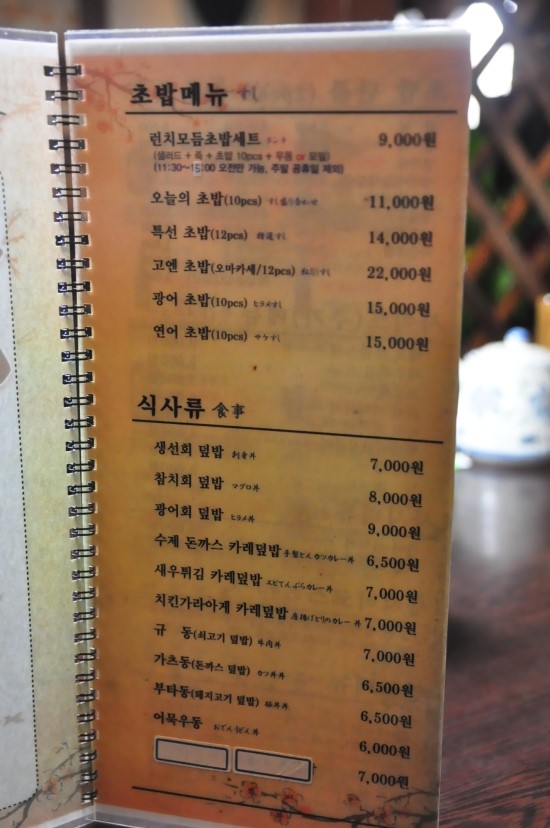 초밥메뉴 すし
런치모듬초밥세트 ランチ 9,000원
(샐러드 + 죽 + 초밥 10pcs + 우동 or 모밀)
(11:30~15:00 오전만 가능, 주말 공휴일 제외)
오늘의 초밥(10pcs) すし盛り合わせ 11,000원
특선 초밥(12pcs) 特選すし 14,000원
고엔 초밥(오마카세/12pcs) 22,000원
광어 초밥(10pcs) ヒラメすし 15,000원
연어 초밥(10pcs) サケすし 15,000원
식사류 食事
생선회 덮밥 刺身丼 7,000원
참치회 덮밥 マグロ丼 8,000원
광어회 덮밥 ヒラメ丼 9,000원
수제 돈까스 카레덮밥 手製とんカツカレー丼 6,500원
새우튀김 카레덮밥 エビてんぷらカレー丼 7,000원
치킨가라아게 카레덮밥 唐揚げとりのカレー丼 7,000원
규 동(쇠고기 덮밥) 牛肉丼 7,000원
가츠동(돈까스 덮밥) カツ丼 6,500원
부타동(돼지고기 덮밥) 豚丼 6,500원
어묵우동 おでんうどん 6,000원
7,000원